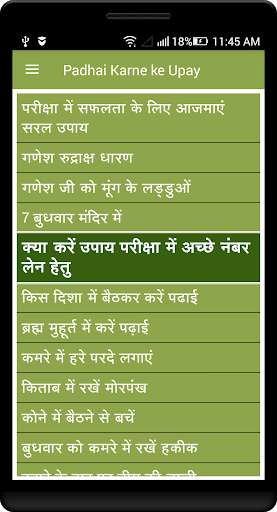 18% 11:45 AM
Padhai Karne ke Upay
परीक्षा में सफलता के लिए आजमाएं
सरल उपाय
गणेश रुद्राक्ष धारण
गणेश जी को मूंग के लड्डुओं
7 बुधवार मंदिर में
क्या करें उपाय परीक्षा में अच्छे नंबर
लेन हेतु
किस दिशा में बैठकर करें पढाई
ब्रह्म मुहूर्त में करें पढ़ाई
कमरे में हरे परदे लगाएं
किताब में रखें मोरपंख
कोने में बैठने से बचें
बुधवार को कमरे में रखें हकीक